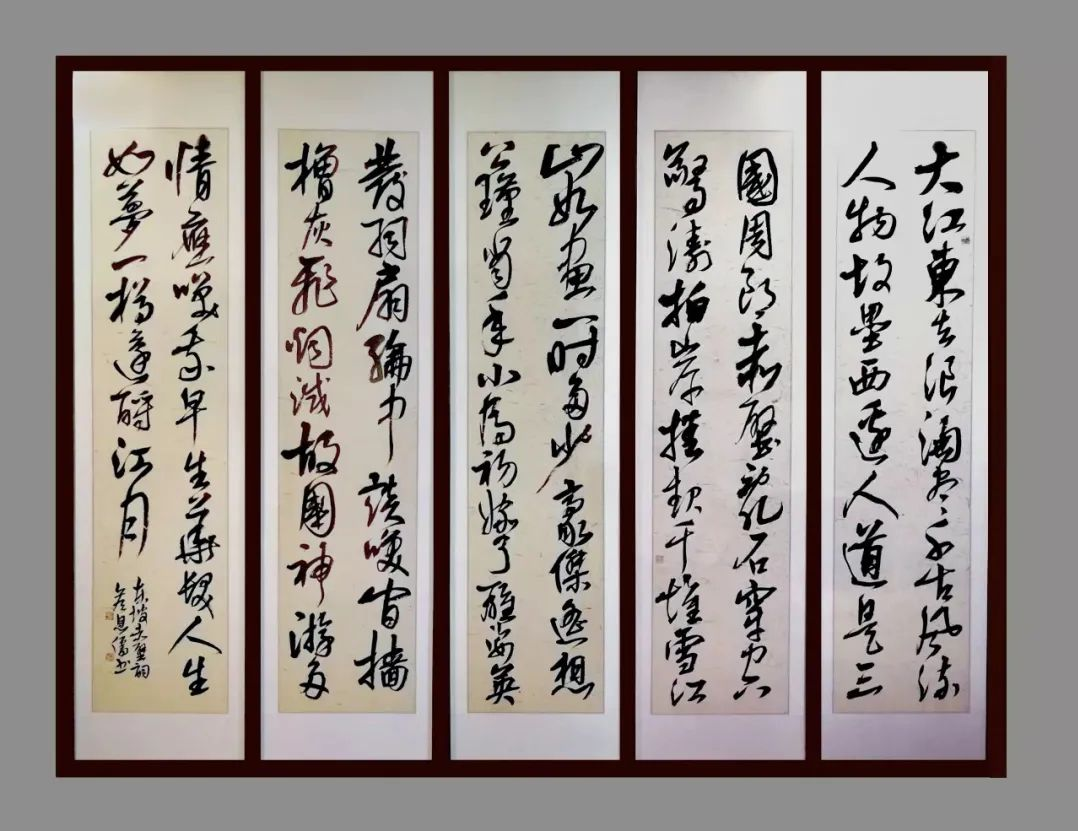 大江東去浪淘盡千古風流
人物故壘西邊人道是三
國周郎赤壁亂石穿空
驚濤拍岸捲起千堆雪江
山如畫一時多少豪傑遙想
公瑾當年小喬初嫁了雄姿英
發羽扇綸巾談咲間檣
櫓灰飛烟滅故國神游多
情應咲我早生華髮人生
如夢一樽還酹江月
東坡赤壁詞